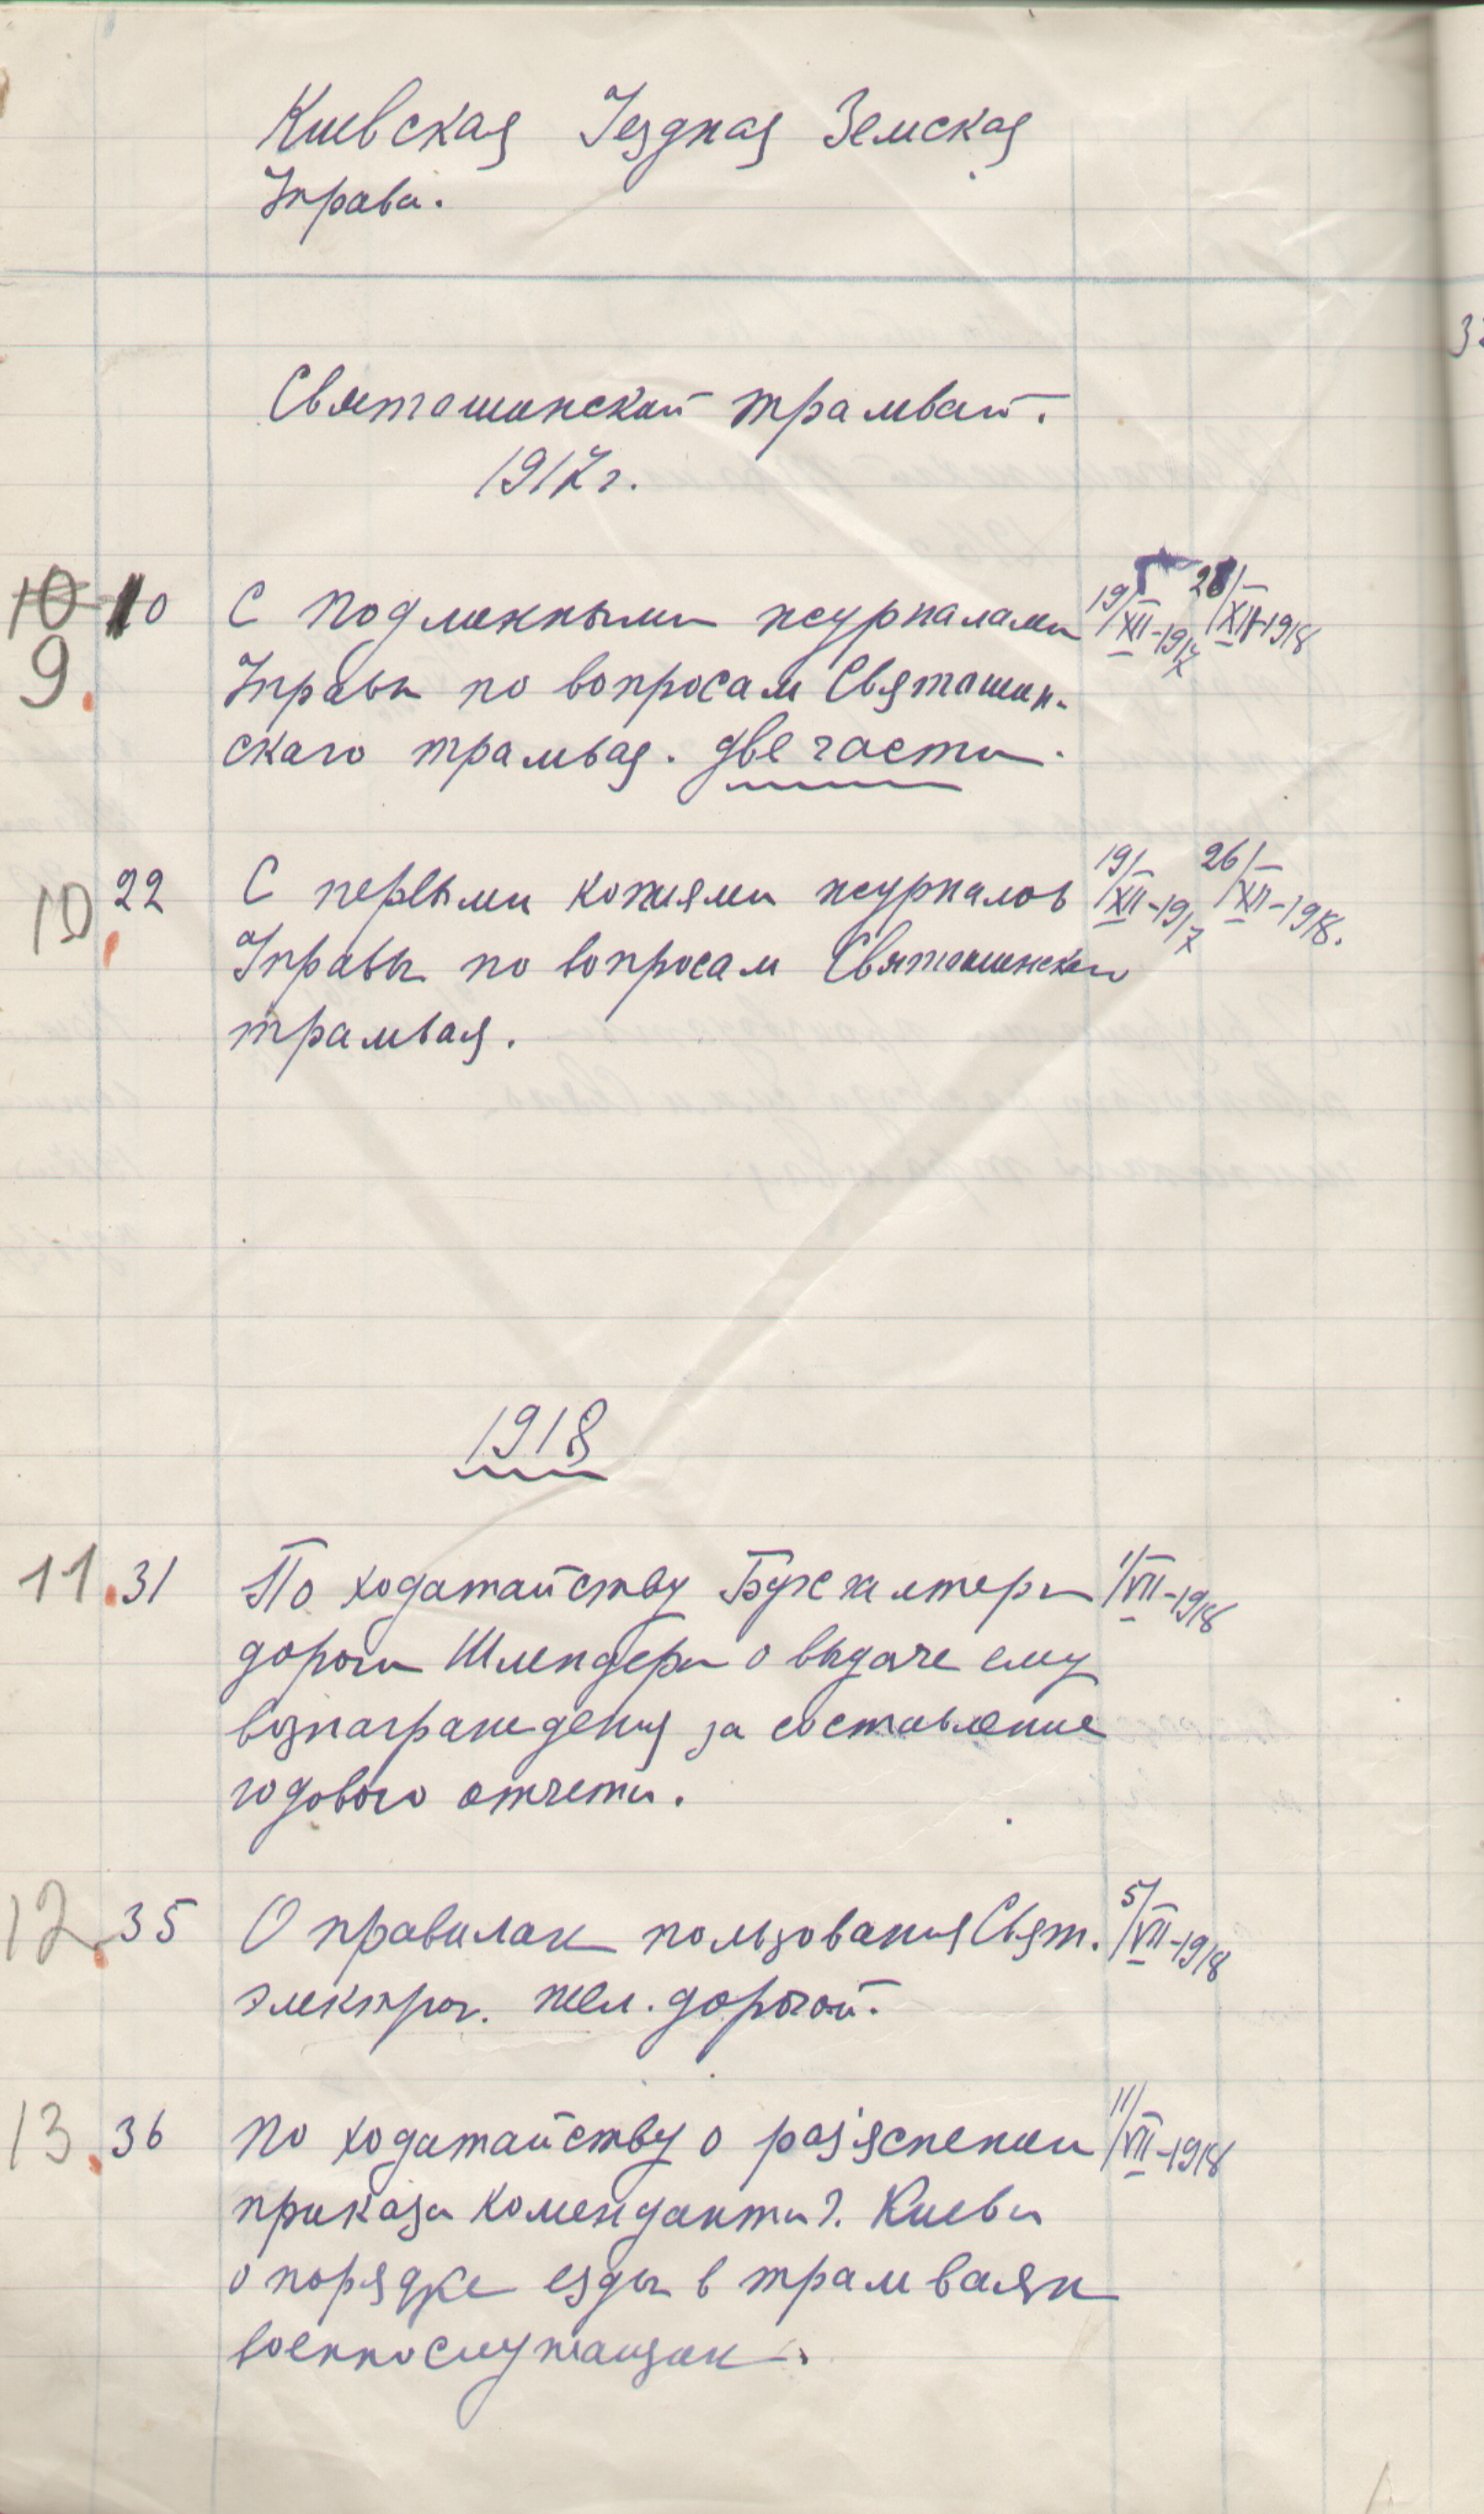 Киевская Уездная Земская
Управа.
Святошинский трамвай.
1917 г.
10 10 С подлинными журналами 19/XII-1917 28/XII-1918
9. Управы по вопросам Святошин-
скаго трамвая. две части.
10. 22 С первыми копиями журналов 19/XII-1917 26/XII-1918.
Управы по вопросам Святошинского
трамвая.
1918
11. 31 По ходатайству Бухгалтера 1/VII-1918
дороги Шлендера о выдаче ему
вознаграждения за составление
годового отчета.
12. 35 О правилах пользования Свят. 5/VII-1918
электрич. жел. дорогой.
13. 36 По ходатайству о раз'яснении 11/VII-1918
приказа Коменданта г. Киева
о порядке езды в трамваях
военнослужащих.